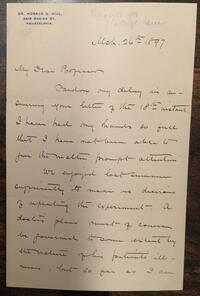 DR. HORACE G. HILL,
PHILADELPHIA.
Mch. 26th 1897
My Dear Professor
Pardon my delay in an-
swering your letter of the 18th instant
I have had my hands so full
that I have not been able to
give the matter prompt attention
We enjoyed last summer
sufficiently to make us desirous
of repeating the experiment. A
doctor's plans must of course
be governed to some extent by
the nature of his patients ill-
ness, but so far as I am